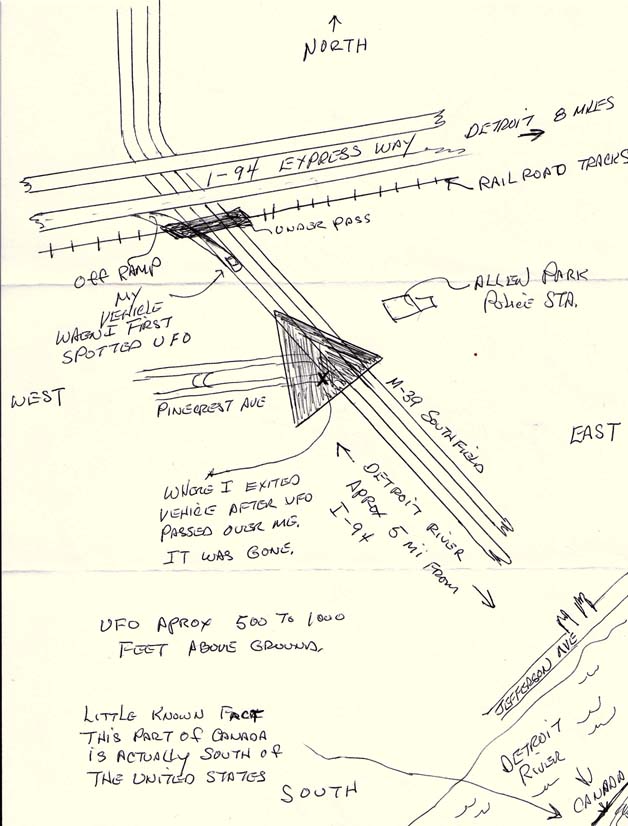 NORTH
DETROIT 8 MILES
I-94 EXPRESS WAY
RAILROAD TRACKS
UNDER PASS
OFF RAMP
MY
VEHICLE
WHEN I FIRST
SPOTTED UFO
ALLEN PARK
POLICE STA.
WEST
PINECREST AVE
M-39 SOUTHFIELD
EAST
WHERE I EXITED
VEHICLE AFTER UFO
PASSED OVER ME.
IT WAS GONE.
DETROIT RIVER
APROX 5 MI FROM
I-94
UFO APROX 500 TO 1000
FEET ABOVE GROUND.
JEFFERSON AVE
LITTLE KNOWN FACT
THIS PART OF CANADA
IS ACTUALLY SOUTH OF
THE UNITED STATES
DETROIT
RIVER
CANADA
SOUTH